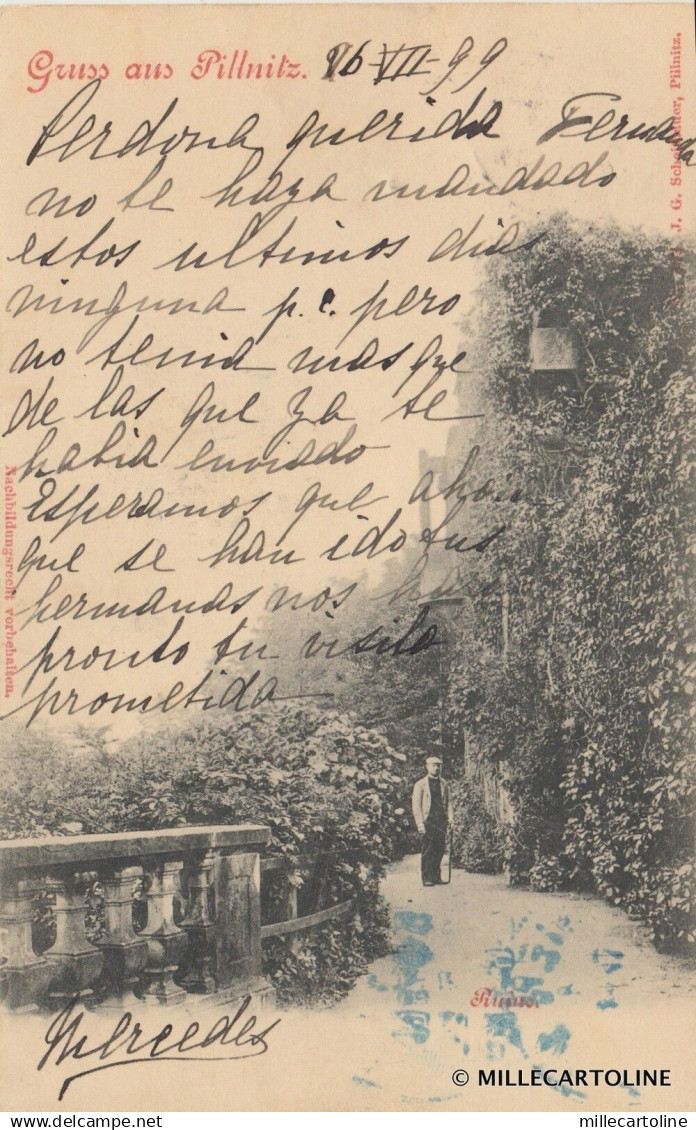 Gruss aus Pillnitz. 16-VII-99
Perdona querida Fernanda
no te haya mandado
estos ultimos dias
ninguna p.c. pero
no tenia mas que
de las que ya te
habia enviado
Esperamos que ahora
que se han ido tus
hermanas nos hara
pronto tu visita
prometida
Mercedes
Nachbildungsrecht vorbehalten.
J. G. Pillnitz.
Ruine.
© MILLECARTOLINE
delcampe.net
millecartoline